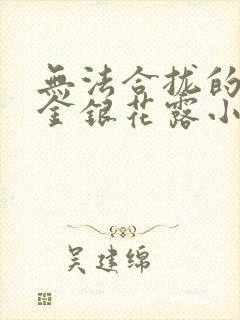 無法合拢的
金銀花露小
吴建绵